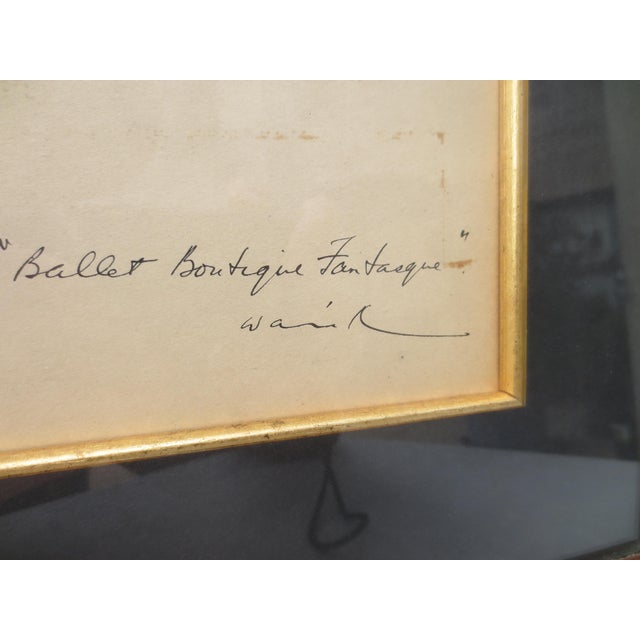 "Ballet Boutique Fantasque".